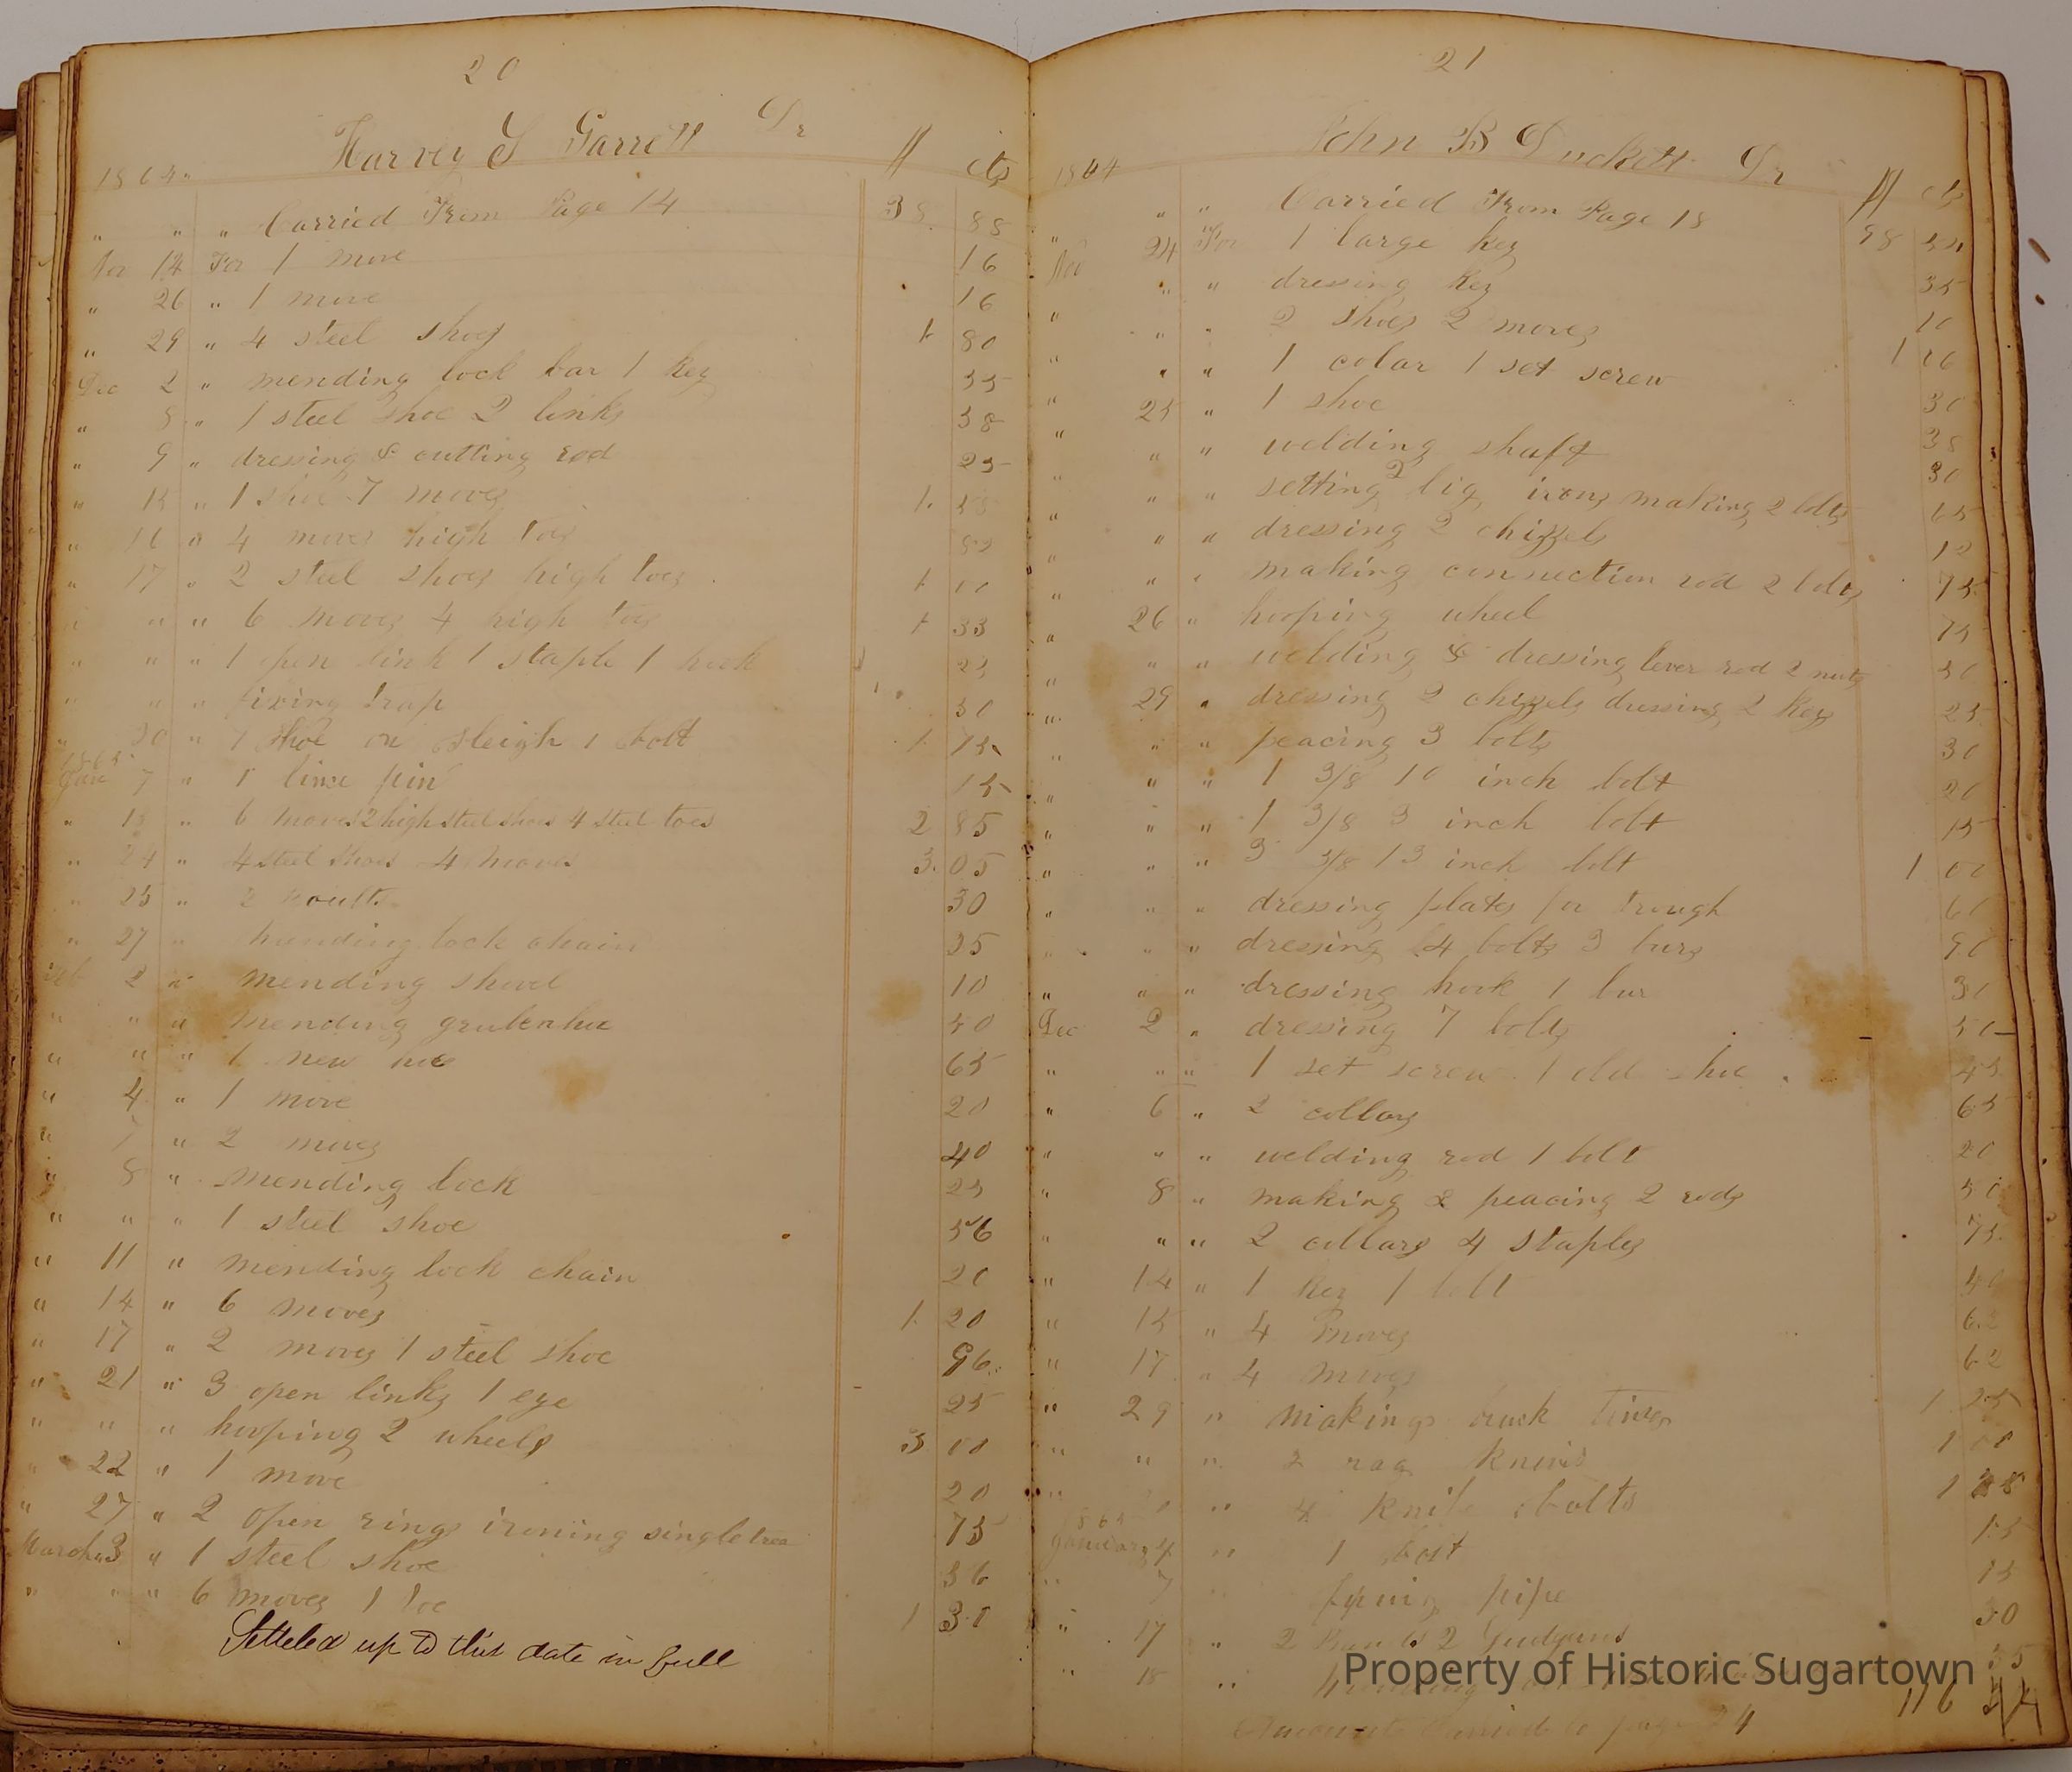 20
Harvey S Garrett Dr
$ cts
" " " Carried From Page 14 38. 88
Nov 14 For 1 move 16
" 26 " 1 move 16
" 29 " 4 steel shoes 1 80
Dec 2 " mending lock bar 1 key 35
" 8 " 1 steel shoe 2 links 58
" 9 " dressing & cutting rod 25
" 15 " 1 shoe 7 moves 1.
" 16 " 4 moves high toes
" 17 " 2 steel shoes high toes 1 00
" " " 6 moves 4 high toes 1 33
" " " 1 open link 1 staple 1 hook 25
" " " fixing trap 50
" 30 " 1 shoe on sleigh 1 bolt 1 75
1865
Jan 7 " 1 pin 15
" 15 " 6 moves 2 high steel shoes 4 steel toes 2 85
" 24 " 4 steel shoes 4 moves 3. 05
" 25 " 2 30
" 27 " lock chain 35
Feb 2 " mending shovel 10
" " " mending 50
" " " 1 new hoe 65
" 4 " 1 move 20
" 7 " 2 moves 40
" 8 " mending lock 25
" " " 1 steel shoe 56
" 11 " mending lock chain 20
" 14 " 6 moves 1. 20
" 17 " 2 moves 1 steel shoe 96
" 21 " 3 open links 1 eye 25
" " " hooping 2 wheels 3 00
" 22 " 1 move 20
" 27 " 2 open rings ironing singletree 75
March 3 " 1 steel shoe 56
" " " 6 moves 1 toe 1 30
Setteled up to this date in full
21
1864 John B Duckett Dr
$ cts
" " " Carried From Page 18 98 54
Nov 24 For 1 large key 35
" " " dressing key 10
" " " 2 shoes 2 moves 1 06
" " " 1 colar 1 set screw 30
" 25 " 1 shoe 38
" " " welding shaft 50
" " " setting 2 big irons making 2 bolts 65
" " " dressing 2 chizzels 12
" " " making connection rod 2 bolts 75
" 26 " hooping wheel 75
" " " welding & dressing lever rod 2 nuts 50
" 29 " dressing 2 chizzels dressing 2 keys 25
" " " peacing 3 bolts 30
" " " 1 3/8 10 inch bolt 20
" " " 1 3/8 3 inch bolt 15
" " " 3 3/8 13 inch bolt 1 00
" " " dressing plates for trough 60
" " " dressing 4 bolts 3 burs 90
" " " dressing hook 1 bur 30
Dec 2 " dressing 7 bolts 50
" " " 1 set screw 1 old shoe 45
" 6 " 2 collars 65
" " " welding rod 1 bolt 20
" 8 " making & peacing 2 rods 50
" " " 2 collars 4 staples 75
" 14 " 1 key 1 bolt 40
" 15 " 4 moves 62
" 17 " 4 moves 62
" 29 " making 1 25
" " " 2 rag 1 00
" " " 4 knife bolts 1
1865
January 4 " 1 bolt 15
" 7 " fixing pipe 15
" 17 " 2 Bands 2 Gudgeons 50
" 18 " 35
Amount Carried to page 24 116 54
Property of Historic Sugartown